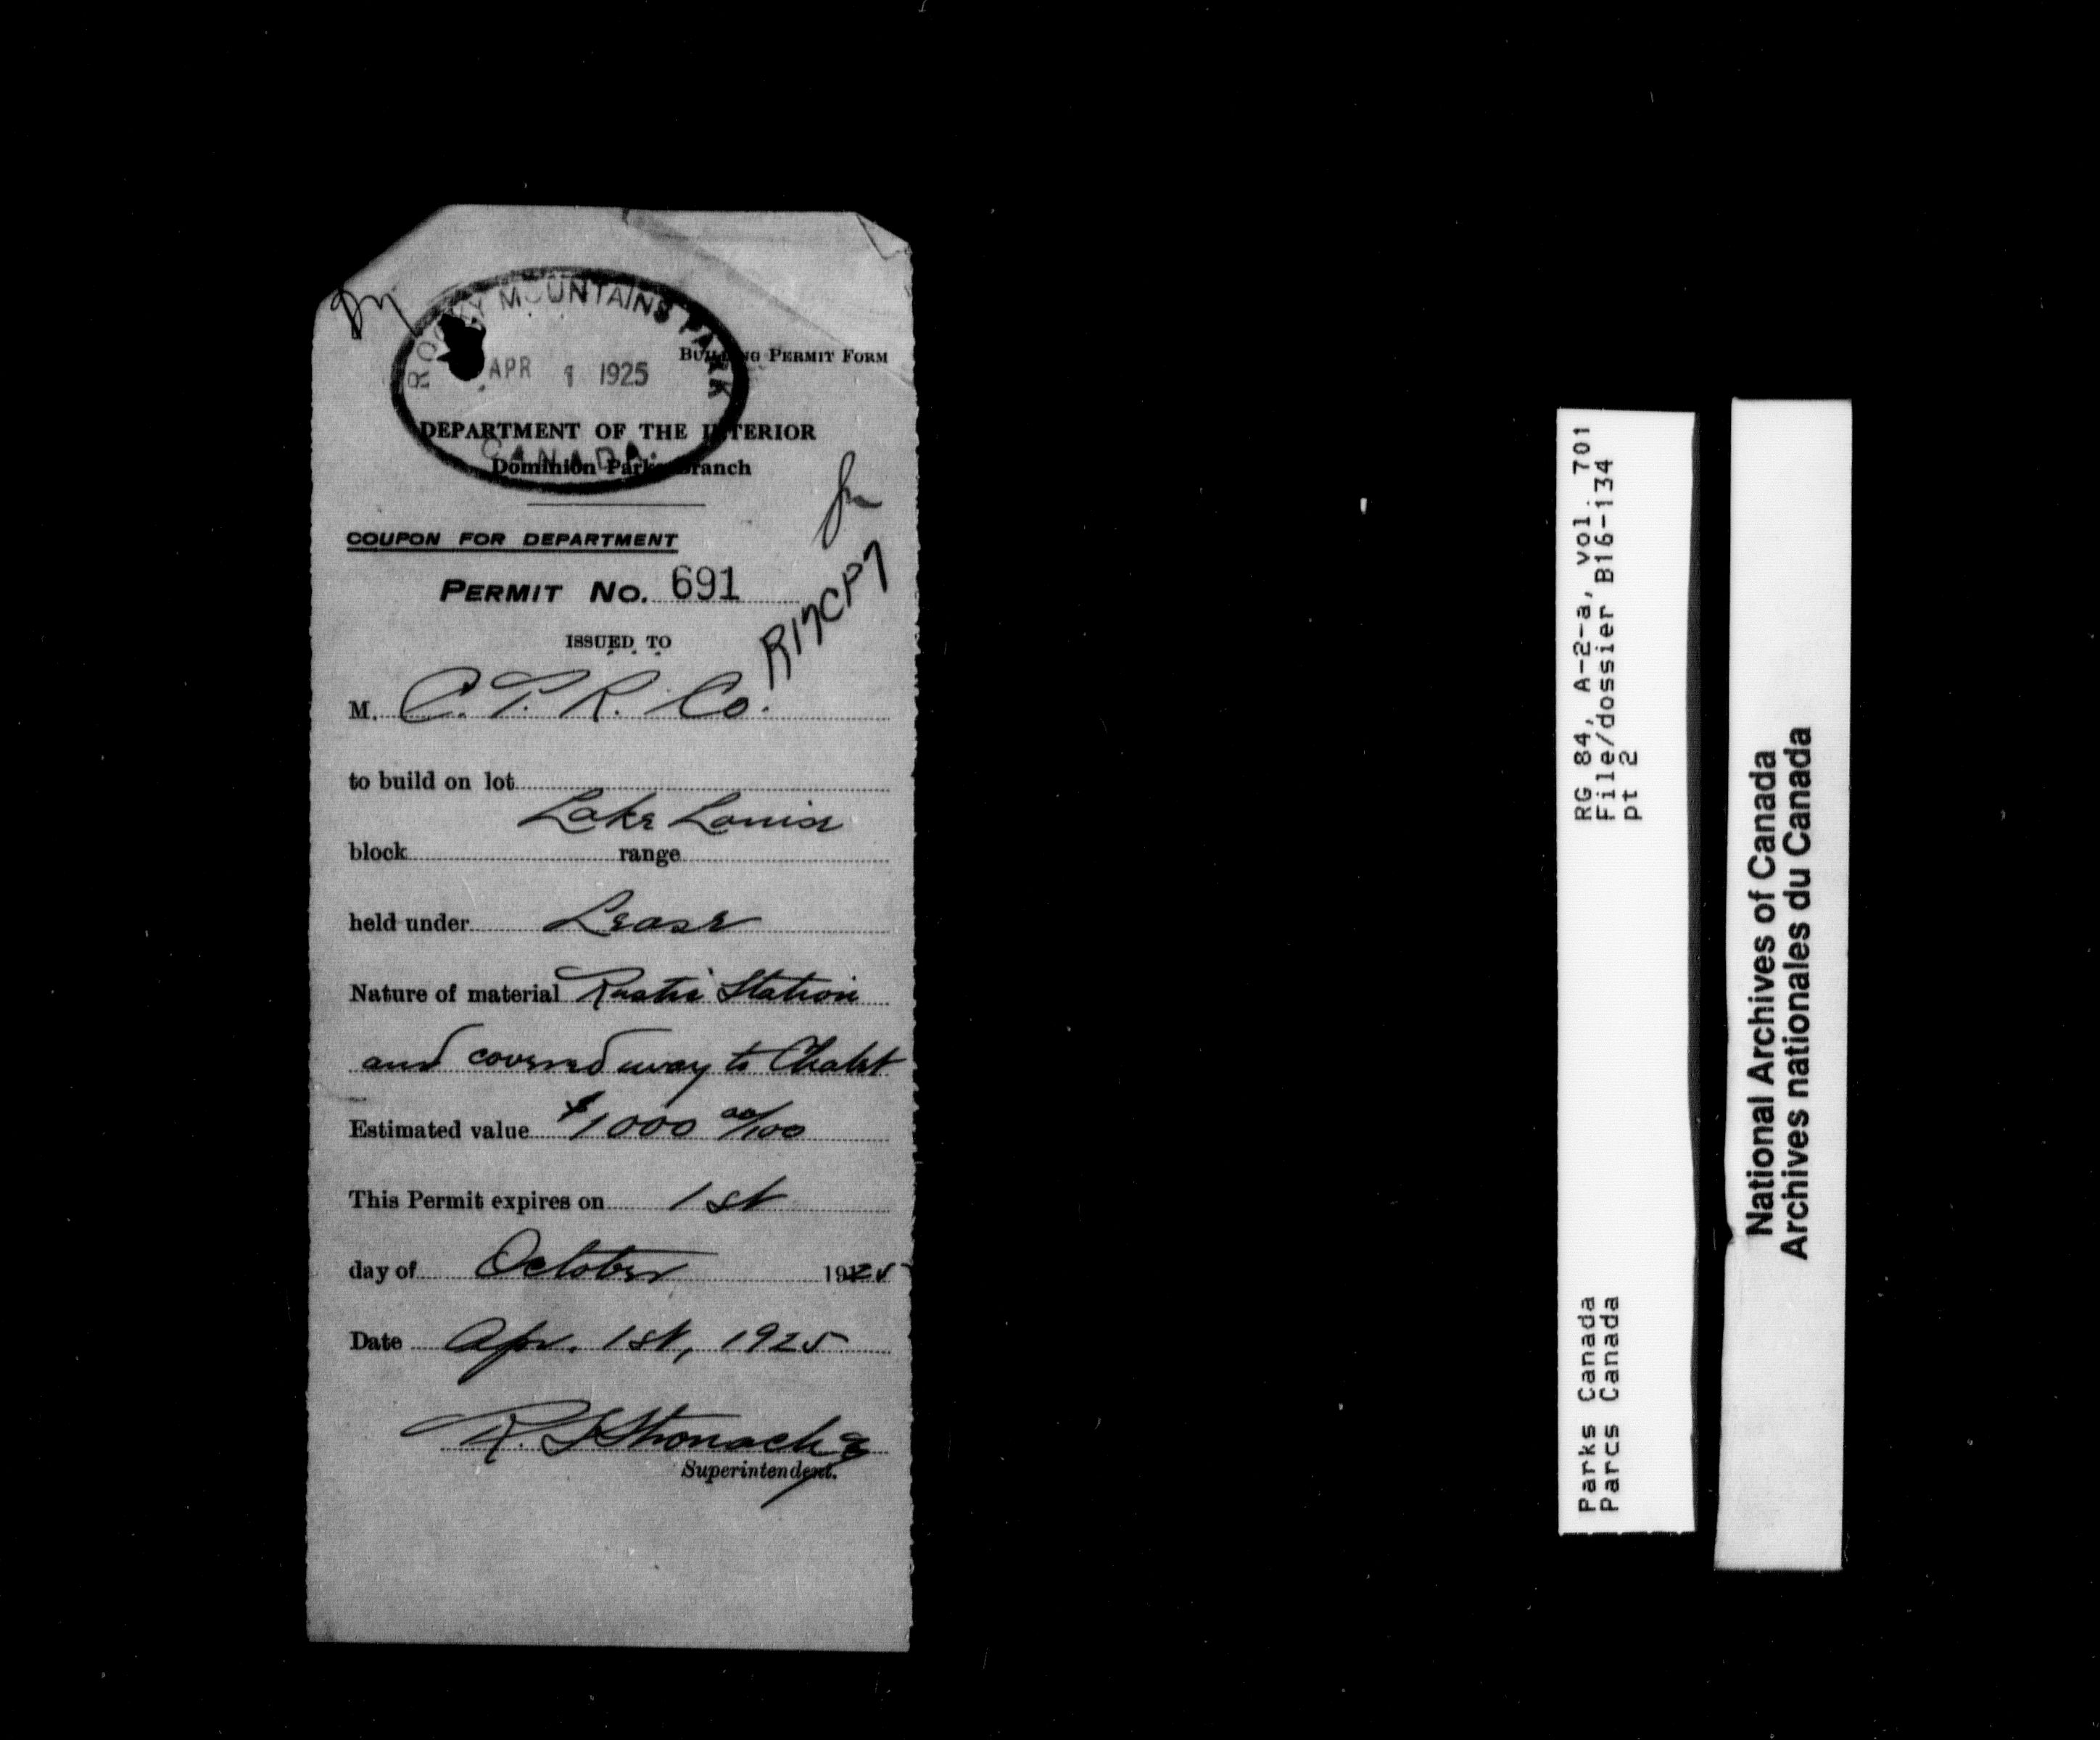 ROCKY MOUNTAINS PARK
APR 1 1925
CANADA.
BUILDING PERMIT FORM
DEPARTMENT OF THE INTERIOR
Dominion Parks Branch
COUPON FOR DEPARTMENT
PERMIT No. 691
R17CP7
ISSUED TO
M. C.P.R. Co.
to build on lot
Lake Louise
block range
held under Lease
Nature of material Rustic Station
and covered way to Chalet
Estimated value $1000 00/100
This Permit expires on 1st
day of October 1925
Date Apr. 1st, 1925
R. S. Stronach
Superintendent.
RG 84, A-2-a, vol. 701
File/dossier B16-134
pt 2
Parks Canada
Parcs Canada
National Archives of Canada
Archives nationales du Canada